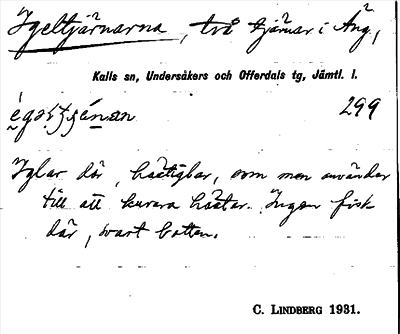 Igeltjärnarna, två tjärnar i Ång,
Kalls sn, Undersåkers och Offerdals tg, Jämtl. l.
299
Iglar där, hästiglar, som men använder
till att kurera hästar. Ingen fisk
där, svart botten.
C. LINDBERG 1931.